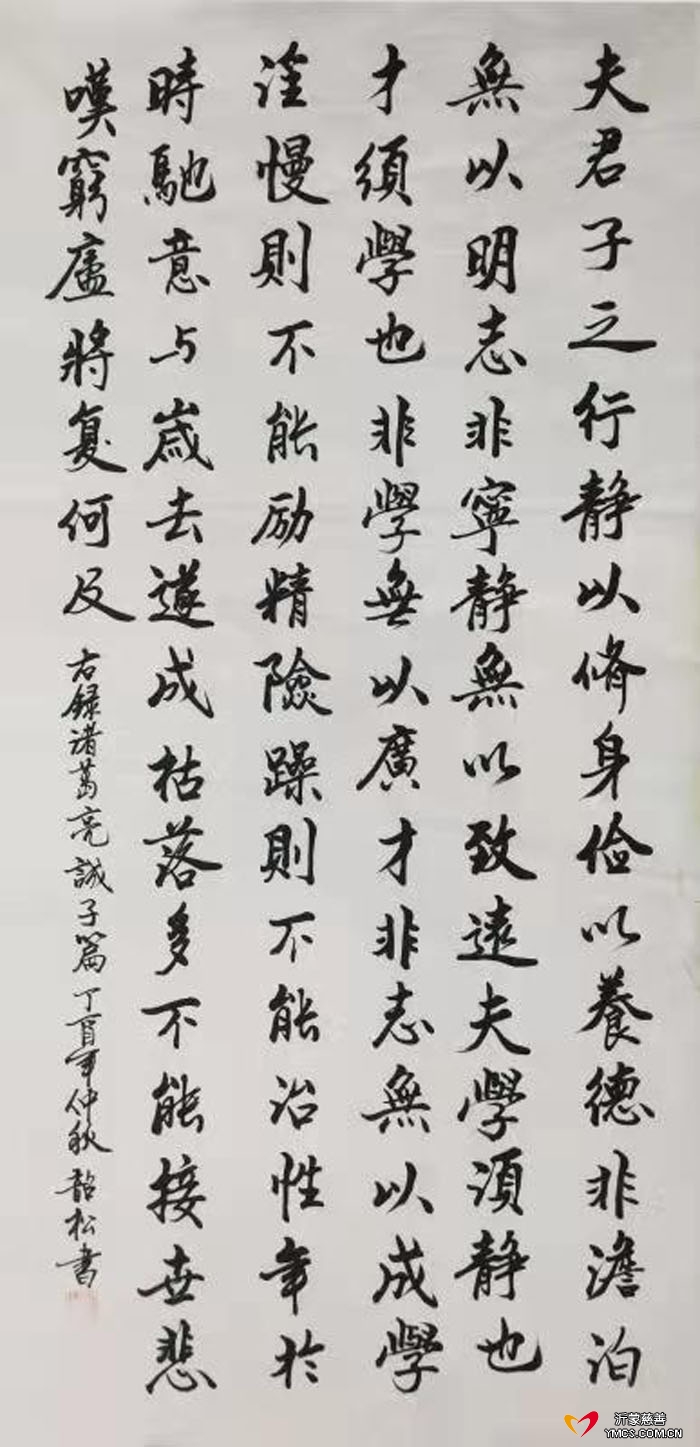 夫君子之行静以脩身俭以養德非澹泊
無以明志非寧静無以致遠夫學須静也
才須學也非學無以廣才非志無以成學
淫慢則不能励精險躁則不能治性年於
時馳意与歲去遂成枯落多不能接世悲
嘆窮廬將复何及
右録诸葛亮誡子篇丁酉年仲秋韶松書
沂蒙慈善
YMCS.COM.CN